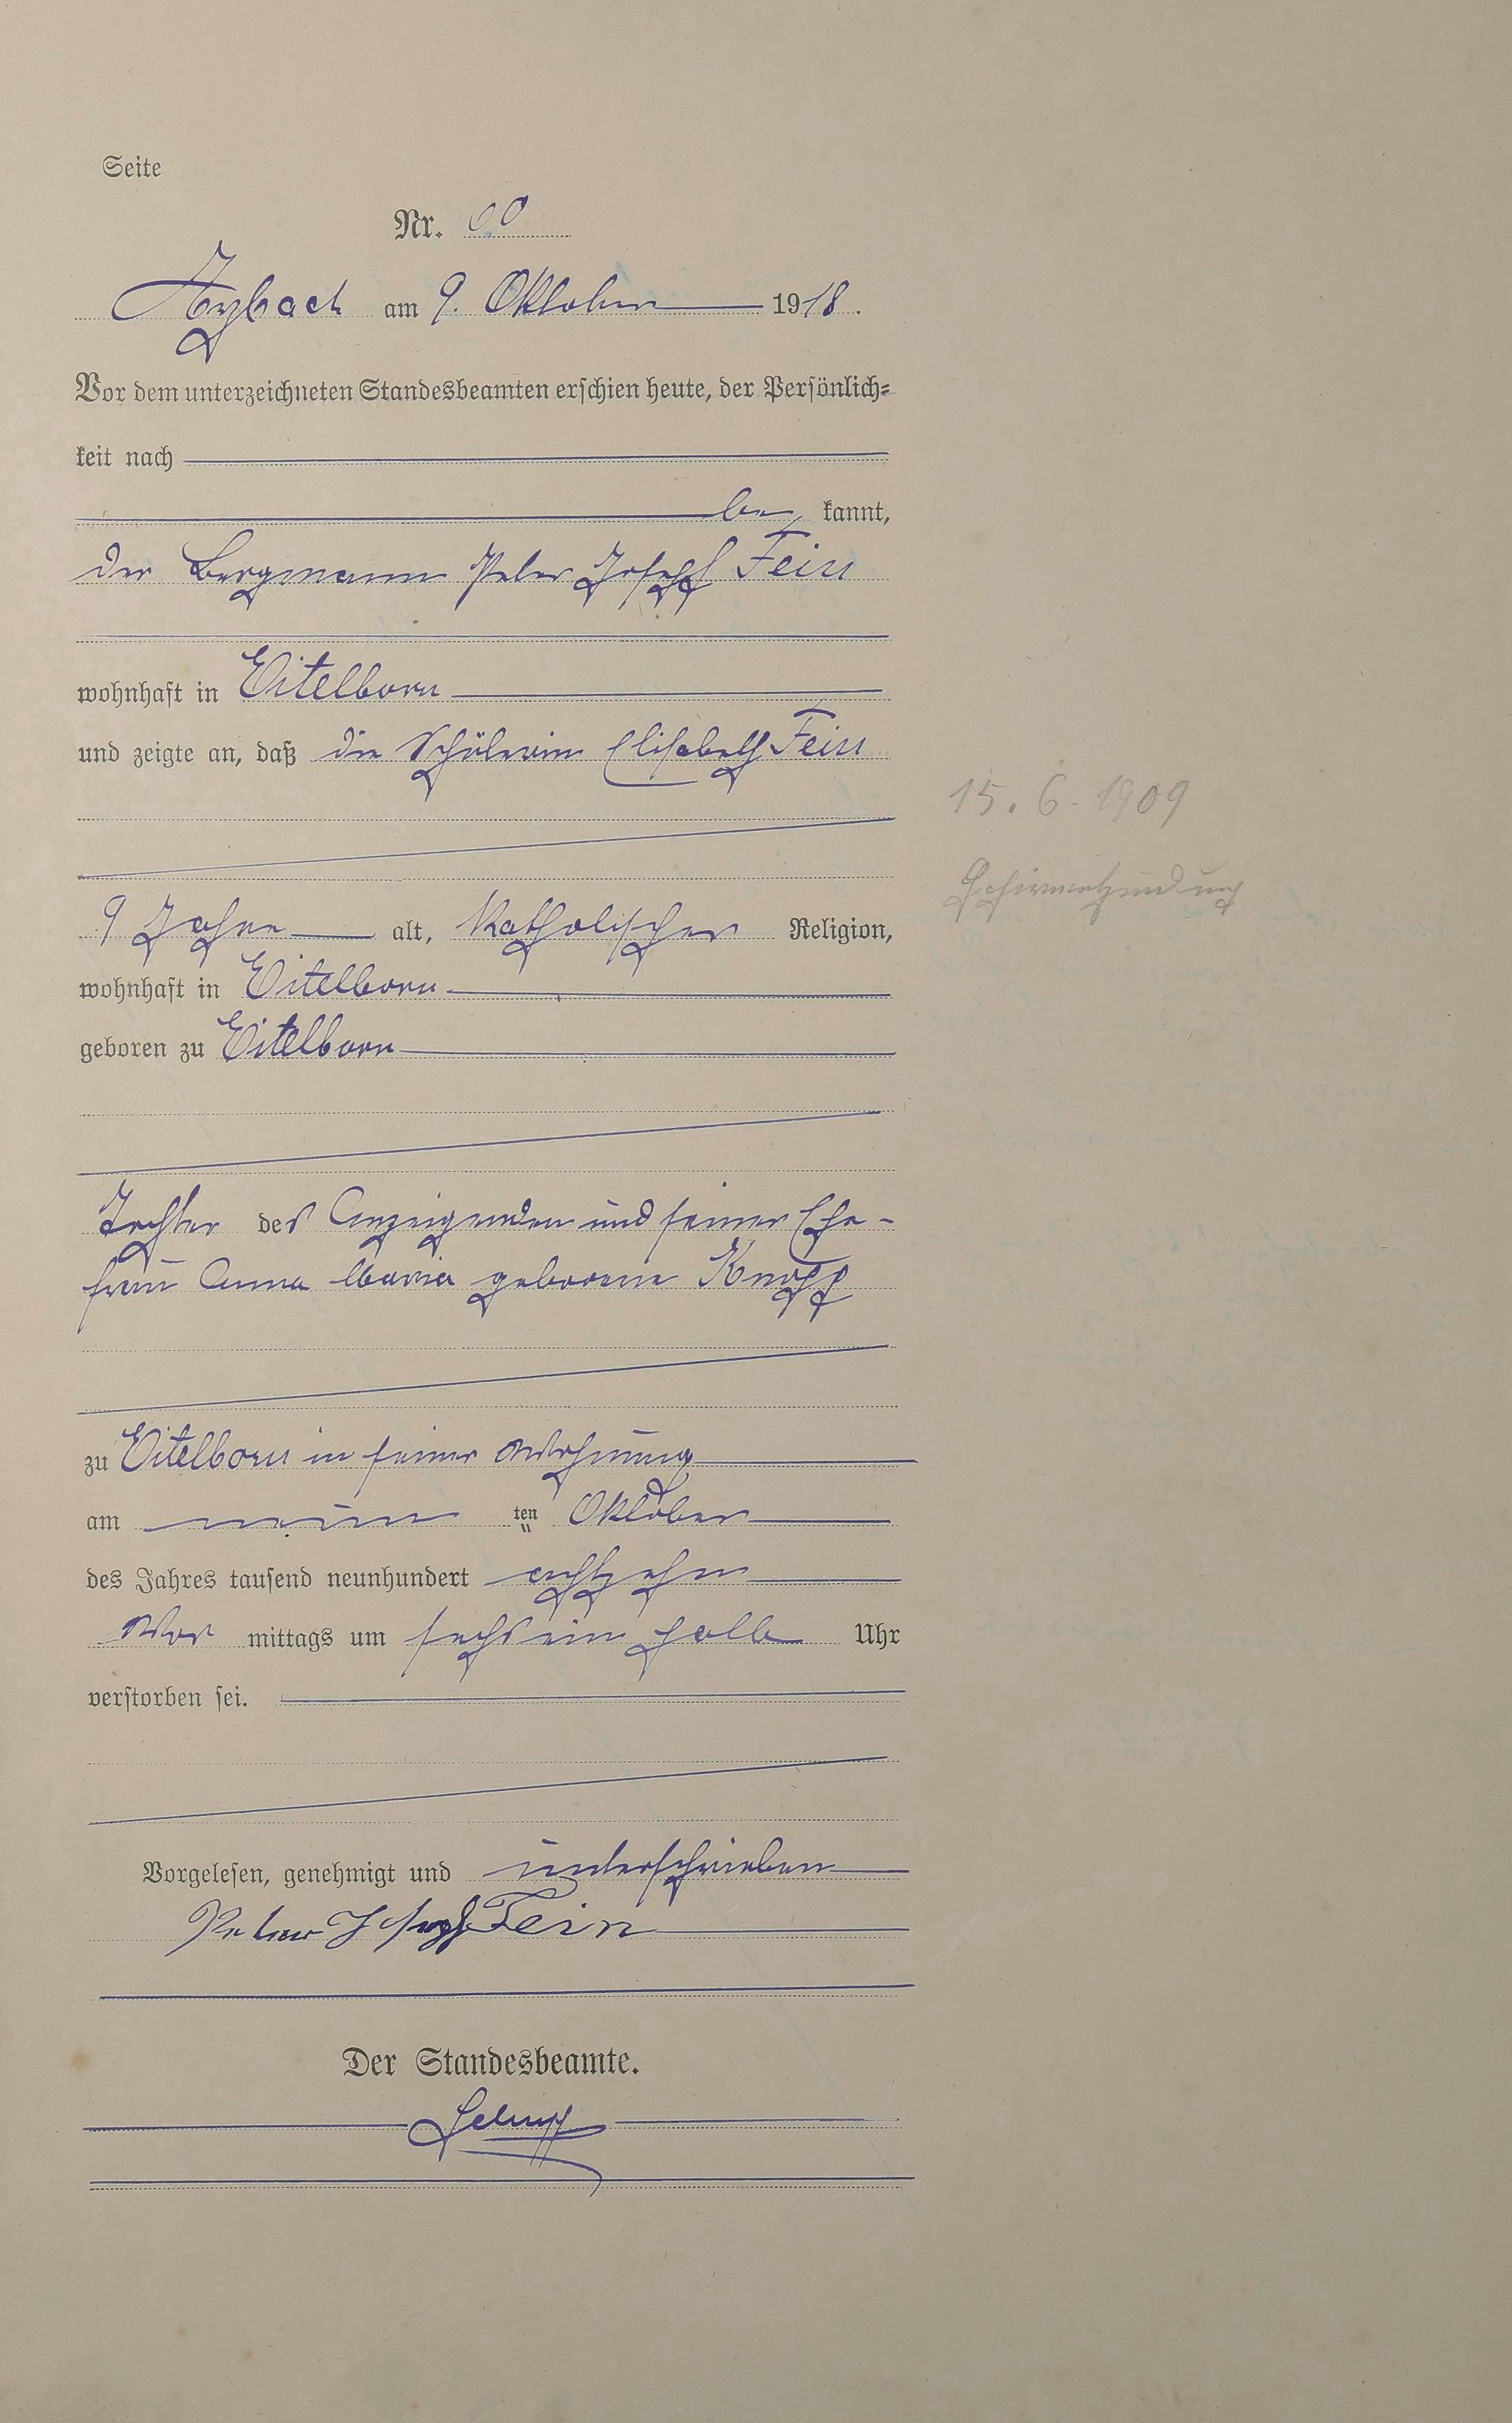 Seite
Nr.
Arzbach am 9. Oktober 1918.
Vor dem unterzeichneten Standesbeamten erschien heute, der Persönlich-
keit nach
be kannt,
der Bergmann Peter Joseph Fein
wohnhaft in Eitelborn
und zeigte an, daß die Schülerin Elisabeth Fein
15. 6. 1909
Gehirnentzündung
9 Jahre alt, katholischer Religion,
wohnhaft in Eitelborn
geboren zu Eitelborn
Tochter des Anzeigenden und seiner Ehe-
frau Anna Maria geborene Knopp
zu Eitelborn in seiner Wohnung
am neun ten Oktober
des Jahres tausend neunhundert achtzehn
Vor mittags um sechs ein halb Uhr
verstorben sei.
Vorgelesen, genehmigt und unterschrieben
Peter Joseph Fein
Der Standesbeamte.